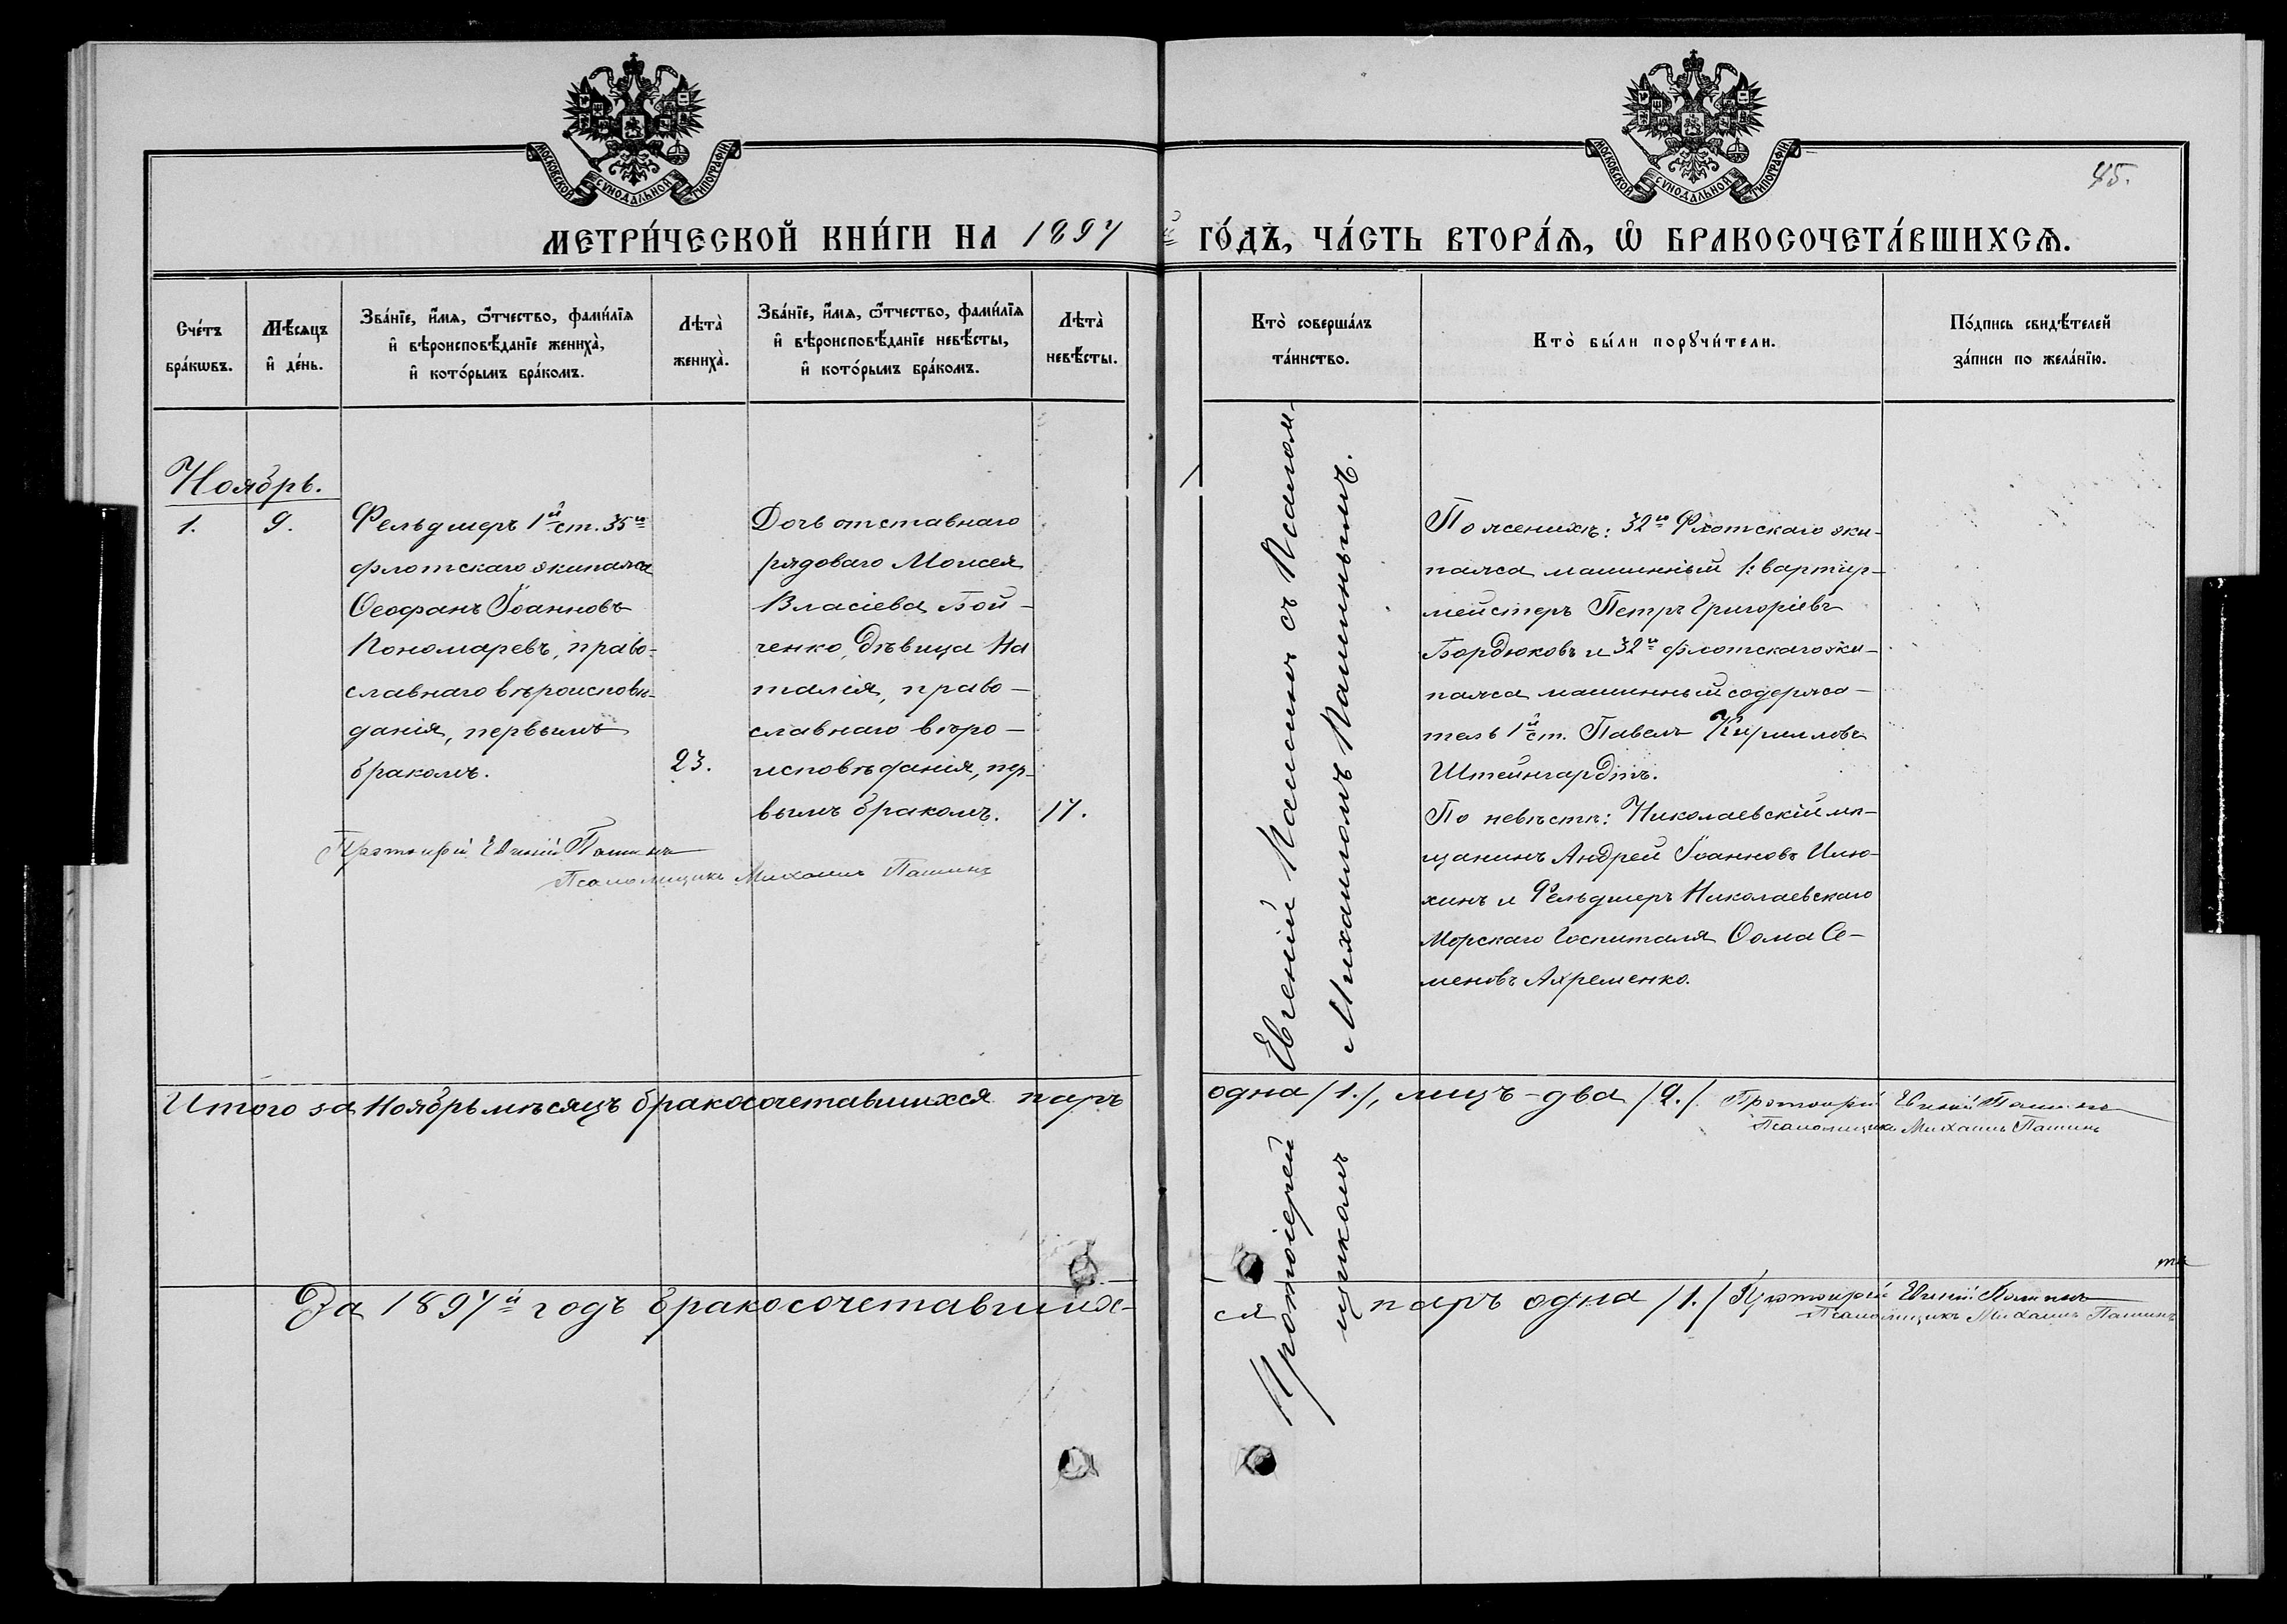 МОСКОВСКОЙ СѴНОДАЛЬНОЙ ТИПОГРАФІИ
МОСКОВСКОЙ СѴНОДАЛЬНОЙ ТИПОГРАФІИ
45.
МЕТРИ́ЧЕСКОЙ КНИ́ГИ НА 1897 й ГО́ДЪ, ЧА́СТЬ ВТОРА́Ѧ, Ѽ БРАКОСОЧЕТА́ВШИХСѦ.
Сче́тъ
бра́кѡвъ.
Мѣ́сяцъ
и҆ де́нь.
Зва́нїе, и҆́мя, ѻ҆́тчество, фами́лїя
и҆ вѣроисповѣ́данїе жениха̀,
и҆ кото́рымъ бра́комъ.
Лѣта̀
жениха̀.
Зва́нїе, и҆́мя, ѻ҆́тчество, фами́лїя
и҆ вѣроисповѣ́данїе невѣ́сты,
и҆ кото́рымъ бра́комъ.
Лѣта̀
невѣ́сты.
Кто̀ соверша́лъ
та́инство.
Кто̀ бы́ли порꙋчи́тели.
По́дпись свидѣ́телей
за́писи по жела́нїю.
Ноябрь.
1.
9.
Фельдшеръ 1й ст. 35го
флотскаго экипажа
Ѳеофанъ Іоанновъ
Пономаревъ, право-
славнаго вѣроисповѣ-
данія, первымъ
бракомъ.
23.
Дочь отставнаго
рядоваго Моисея
Власіева Бой-
ченко, дѣвица На
талія, право-
славнаго вѣро-
исповѣданія, пер-
вымъ бракомъ.
17.
Протоіерей Евгеній Пашинъ
Псаломщикъ Михаилъ Пашинъ
Протоіерей Евгеній Пашинъ съ Псалом-
щикомъ Михаиломъ Пашинымъ.
По женихѣ: 32го Флотскаго эки-
пажа машинный квартир-
мейстеръ Петръ Григоріевъ
Бордюковъ и 32го флотскаго эки-
пажа машинный содержа-
тель 1й ст. Павелъ Кирилловъ
Штейнгардтъ.
По невѣстѣ: Николаевскій мѣ-
щанинъ Андрей Іоанновъ Илю-
хинъ и Фельдшеръ Николаевскаго
Морскаго Госпиталя Ѳома Се-
меновъ Ахременко.
Итого за Ноябрь мѣсяцъ бракосочетавшихся паръ одна /1./, лицъ-два /2./ Протоіерей Евгеній Пашинъ
Псаломщикъ Михаилъ Пашинъ
За 1897й годъ бракосочетавших-ся паръ одна /1./ Протоіерей Евгеній Пашинъ
Псаломщикъ Михаилъ Пашинъ